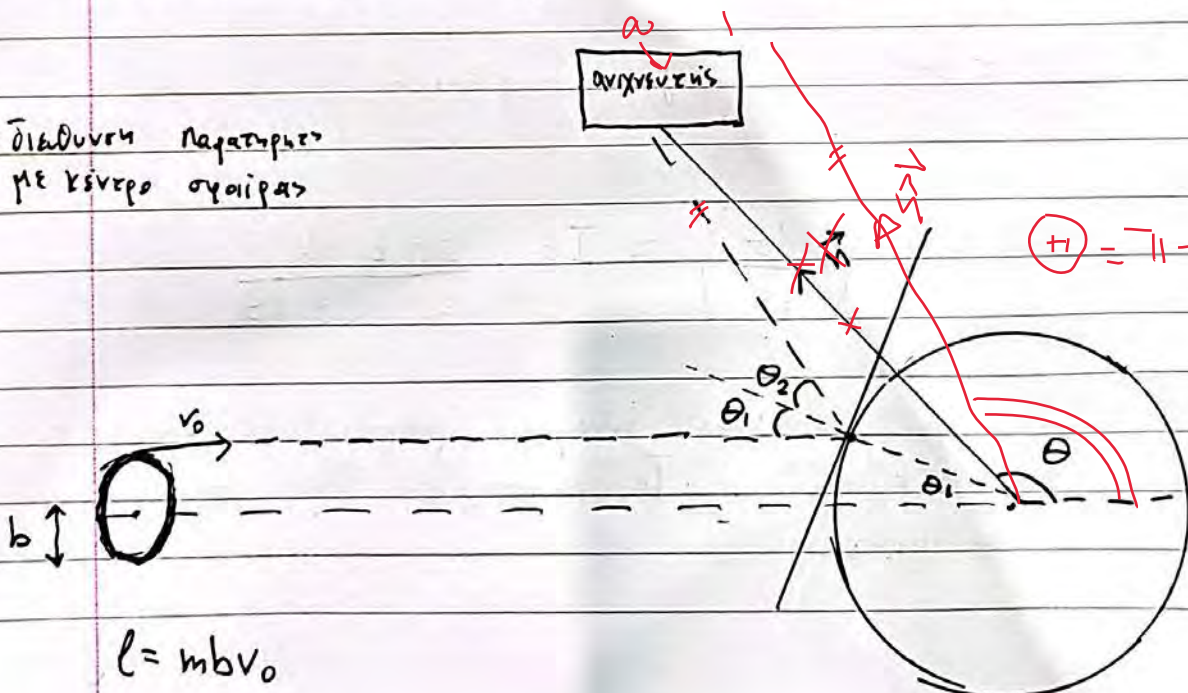 ∞ 1
ανιχνευτής
διεύθυνση παρατηρητ
με κέντρο σφαίρας
Ⓗ = π -
θ₂
θ₁
v₀
θ
θ₁
b
l = mbv₀